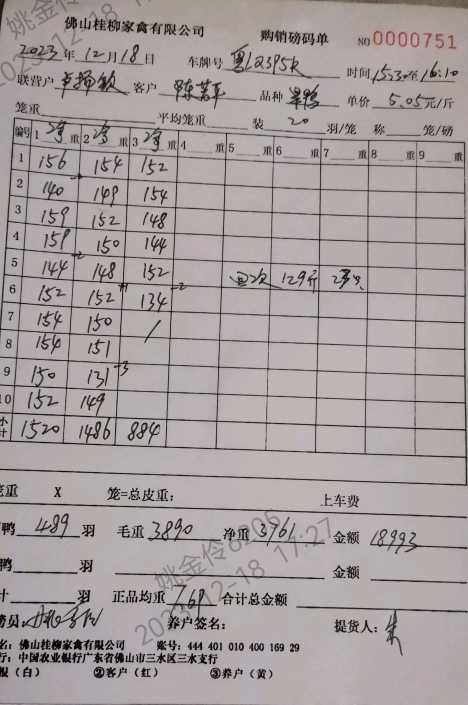 佛山桂柳家禽有限公司 购销磅码单 NO 0000751
2023年12月18日 车牌号 粤L2395K 时间15:30至16:10
联营户 客户 陈 品种 单价 5.05元/斤
笼重 平均笼重 装 20 羽/笼 称 笼/磅
编号 1净重 2净重 3净重 4重 5重 6重 7重 8重 9重
1 156 154 152
2 140 149 154
3 159 152 148
4 159 150 144
5 144 -2 148 152 次 129斤 只
6 152 152 +1 134 -2
7 154 150 /
8 154 151
9 150 131 -3
10 152 149
小计 1520 1486 884
笼重 X 笼=总皮重: 上车费
鸭 489 羽 毛重 3890 净重 3761 金额 18993
鸭 羽 金额
计 羽 正品均重 7.69 合计总金额
务员: 养户签名: 提货人: 朱
名: 佛山桂柳家禽有限公司 账号: 444 401 010 400 169 29
行: 中国农业银行广东省佛山市三水区三水支行
报（白） ②客户（红） ③养户（黄）
姚金伶6205
2023-12-18 17:27